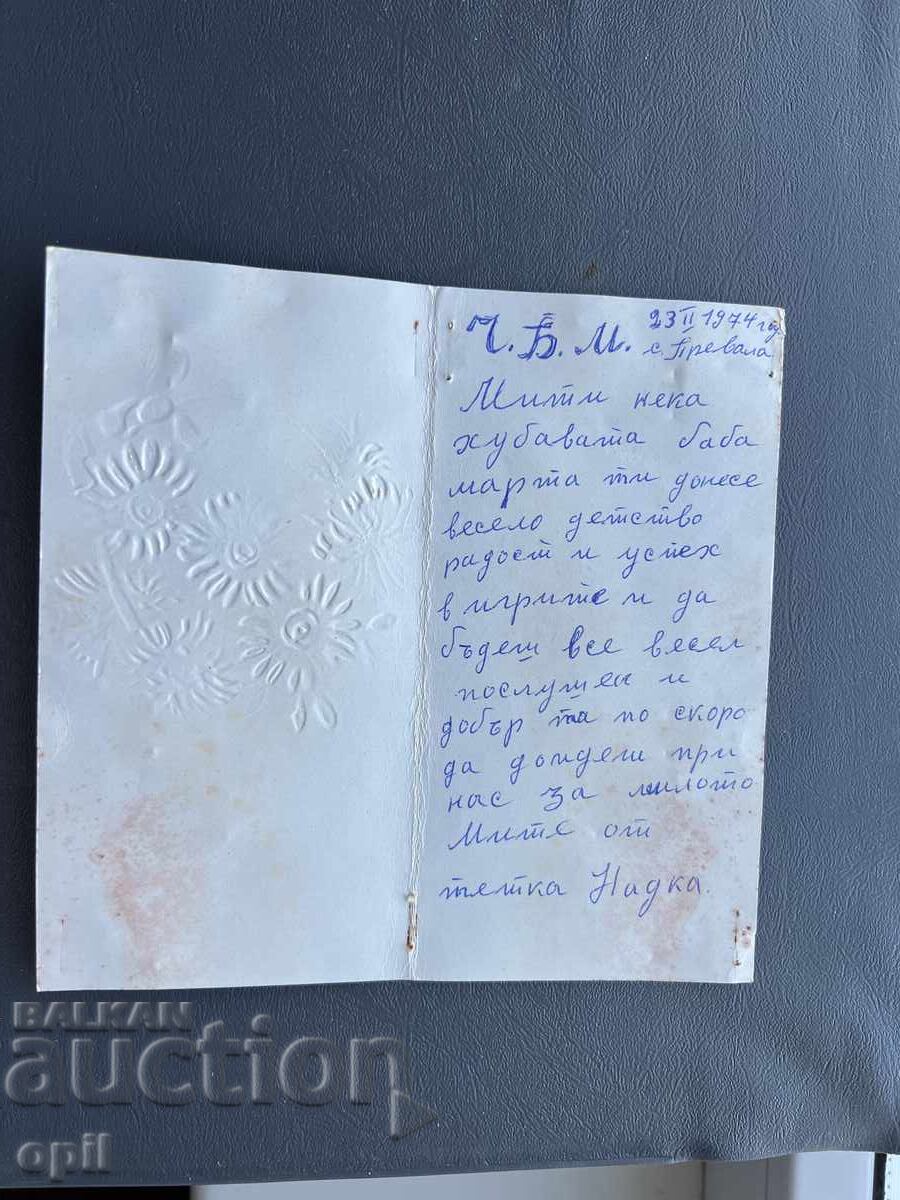 23 II 1974 год
Ч. Б. М. с. Превала
Мити нека
хубавата баба
марта ти донесе
весело детство
радост и успех
в игрите и да
бъдеш все весел
послушен и
добър та по скоро
да дойдеш при
нас за милото
Мите от
тетка Надка.
BALKAN
auction
opil